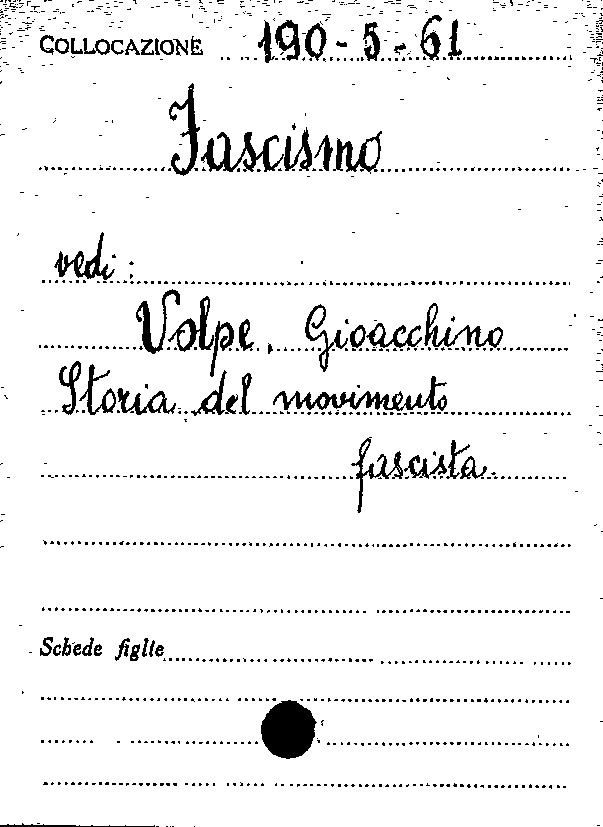 COLLOCAZIONE 190-5-61
Fascismo
vedi:
Volpe, Gioacchino
Storia del movimento
fascista.
Schede figlie